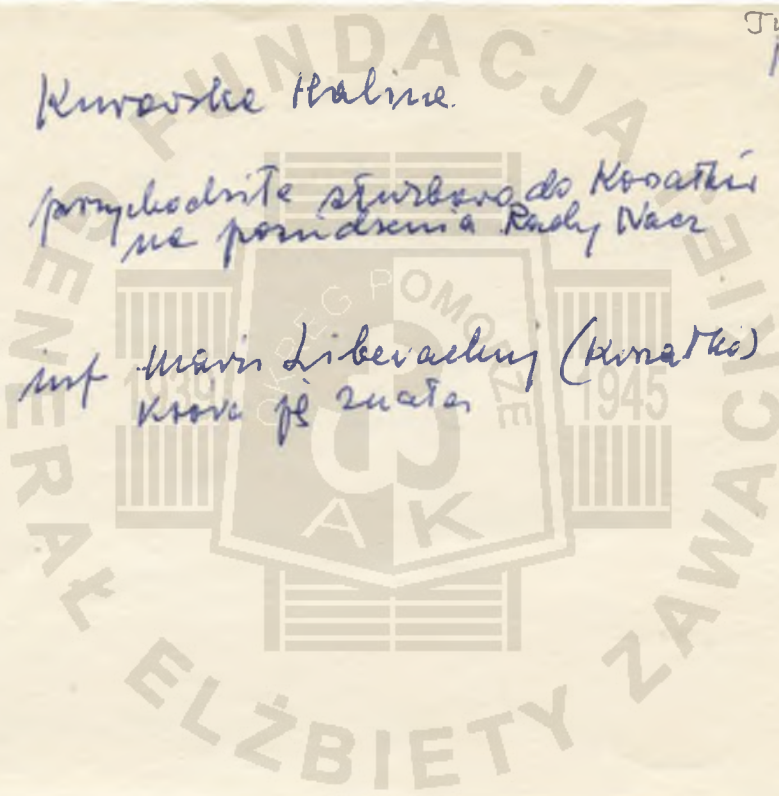 Kurowska Halina.
przychodziła służbowo do Kosatki
na posiedzenia Rady Nacz
inf Marii Liberackiej (Kosatki)
która ją znała
FUNDACJA
GENERAŁ ELŻBIETY ZAWACKIEJ
OKRĘG POMORZE
1939 1945
AK